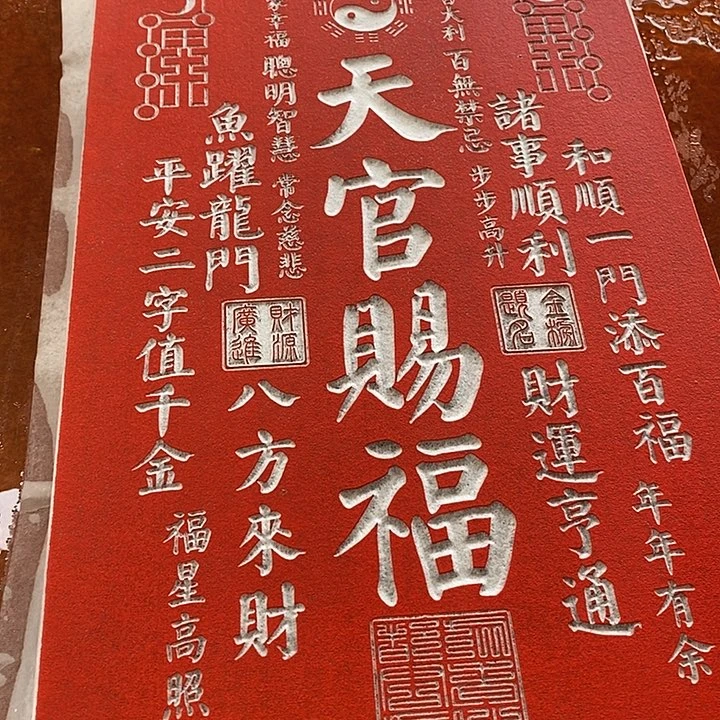 和順一門添百福
年年有余
諸事順利
金榜題名
財運亨通
大利
百無禁忌
步步高升
天官賜福
幸福
聰明智慧
常念慈悲
魚躍龍門
財源廣進
八方來財
平安二字值千金
福星高照